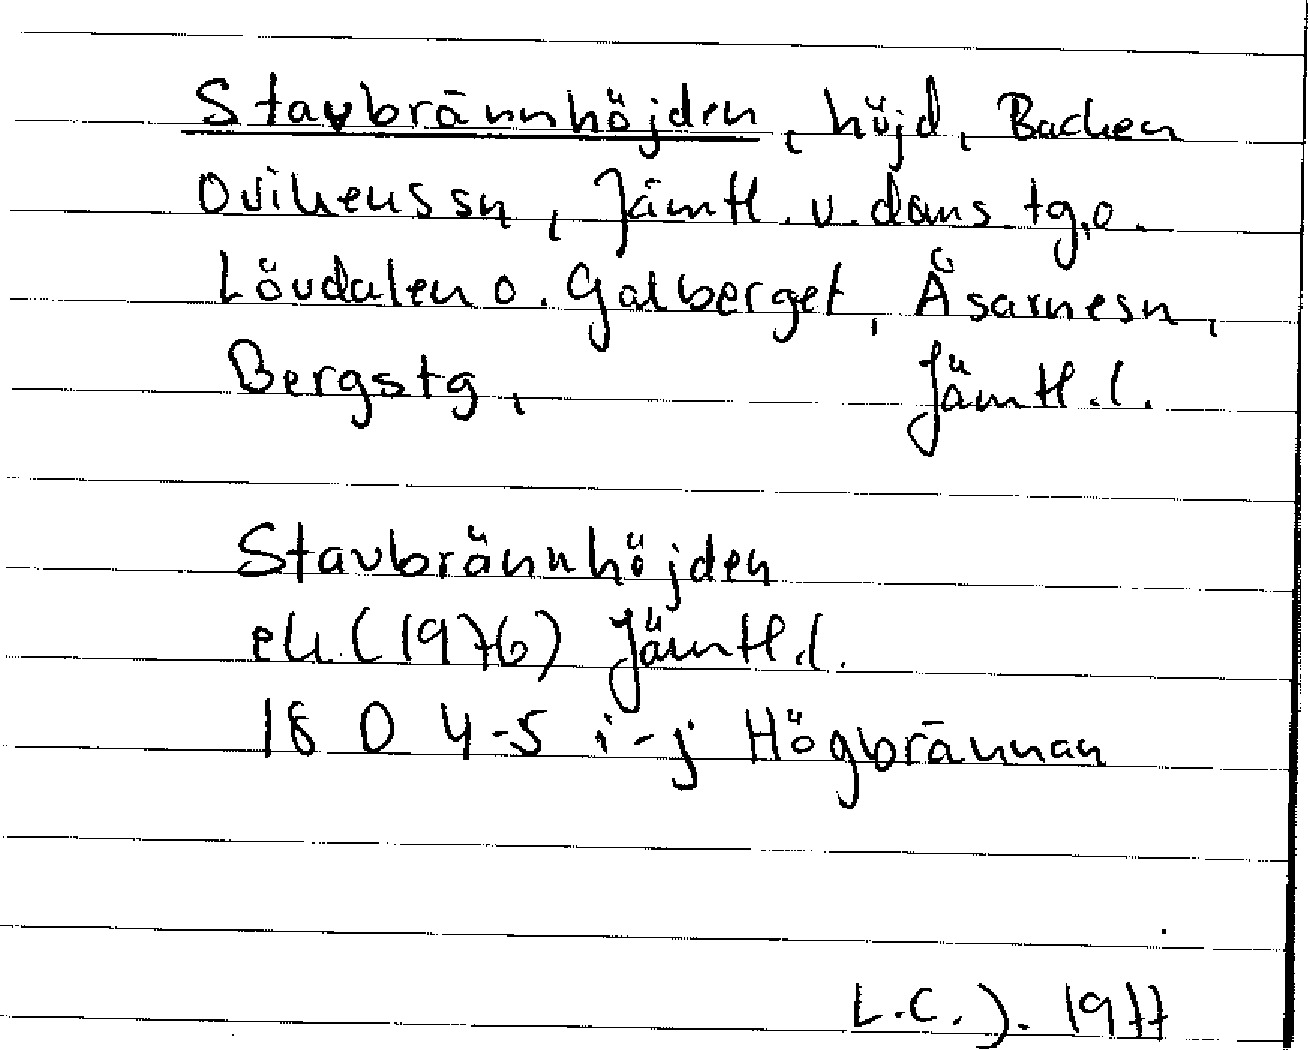 Stavbrännhöjden, höjd, Backen
Ovikens sn, Jämtl. v. doms tg, o.
Lövdalen o. Galberget, Åsarne sn,
Bergs tg, Jämtl. l.
Stavbrännhöjden
ek. (1976) Jämtl. l.
18 D 4-5 i-j Högbrännan
L.C.J. 1977